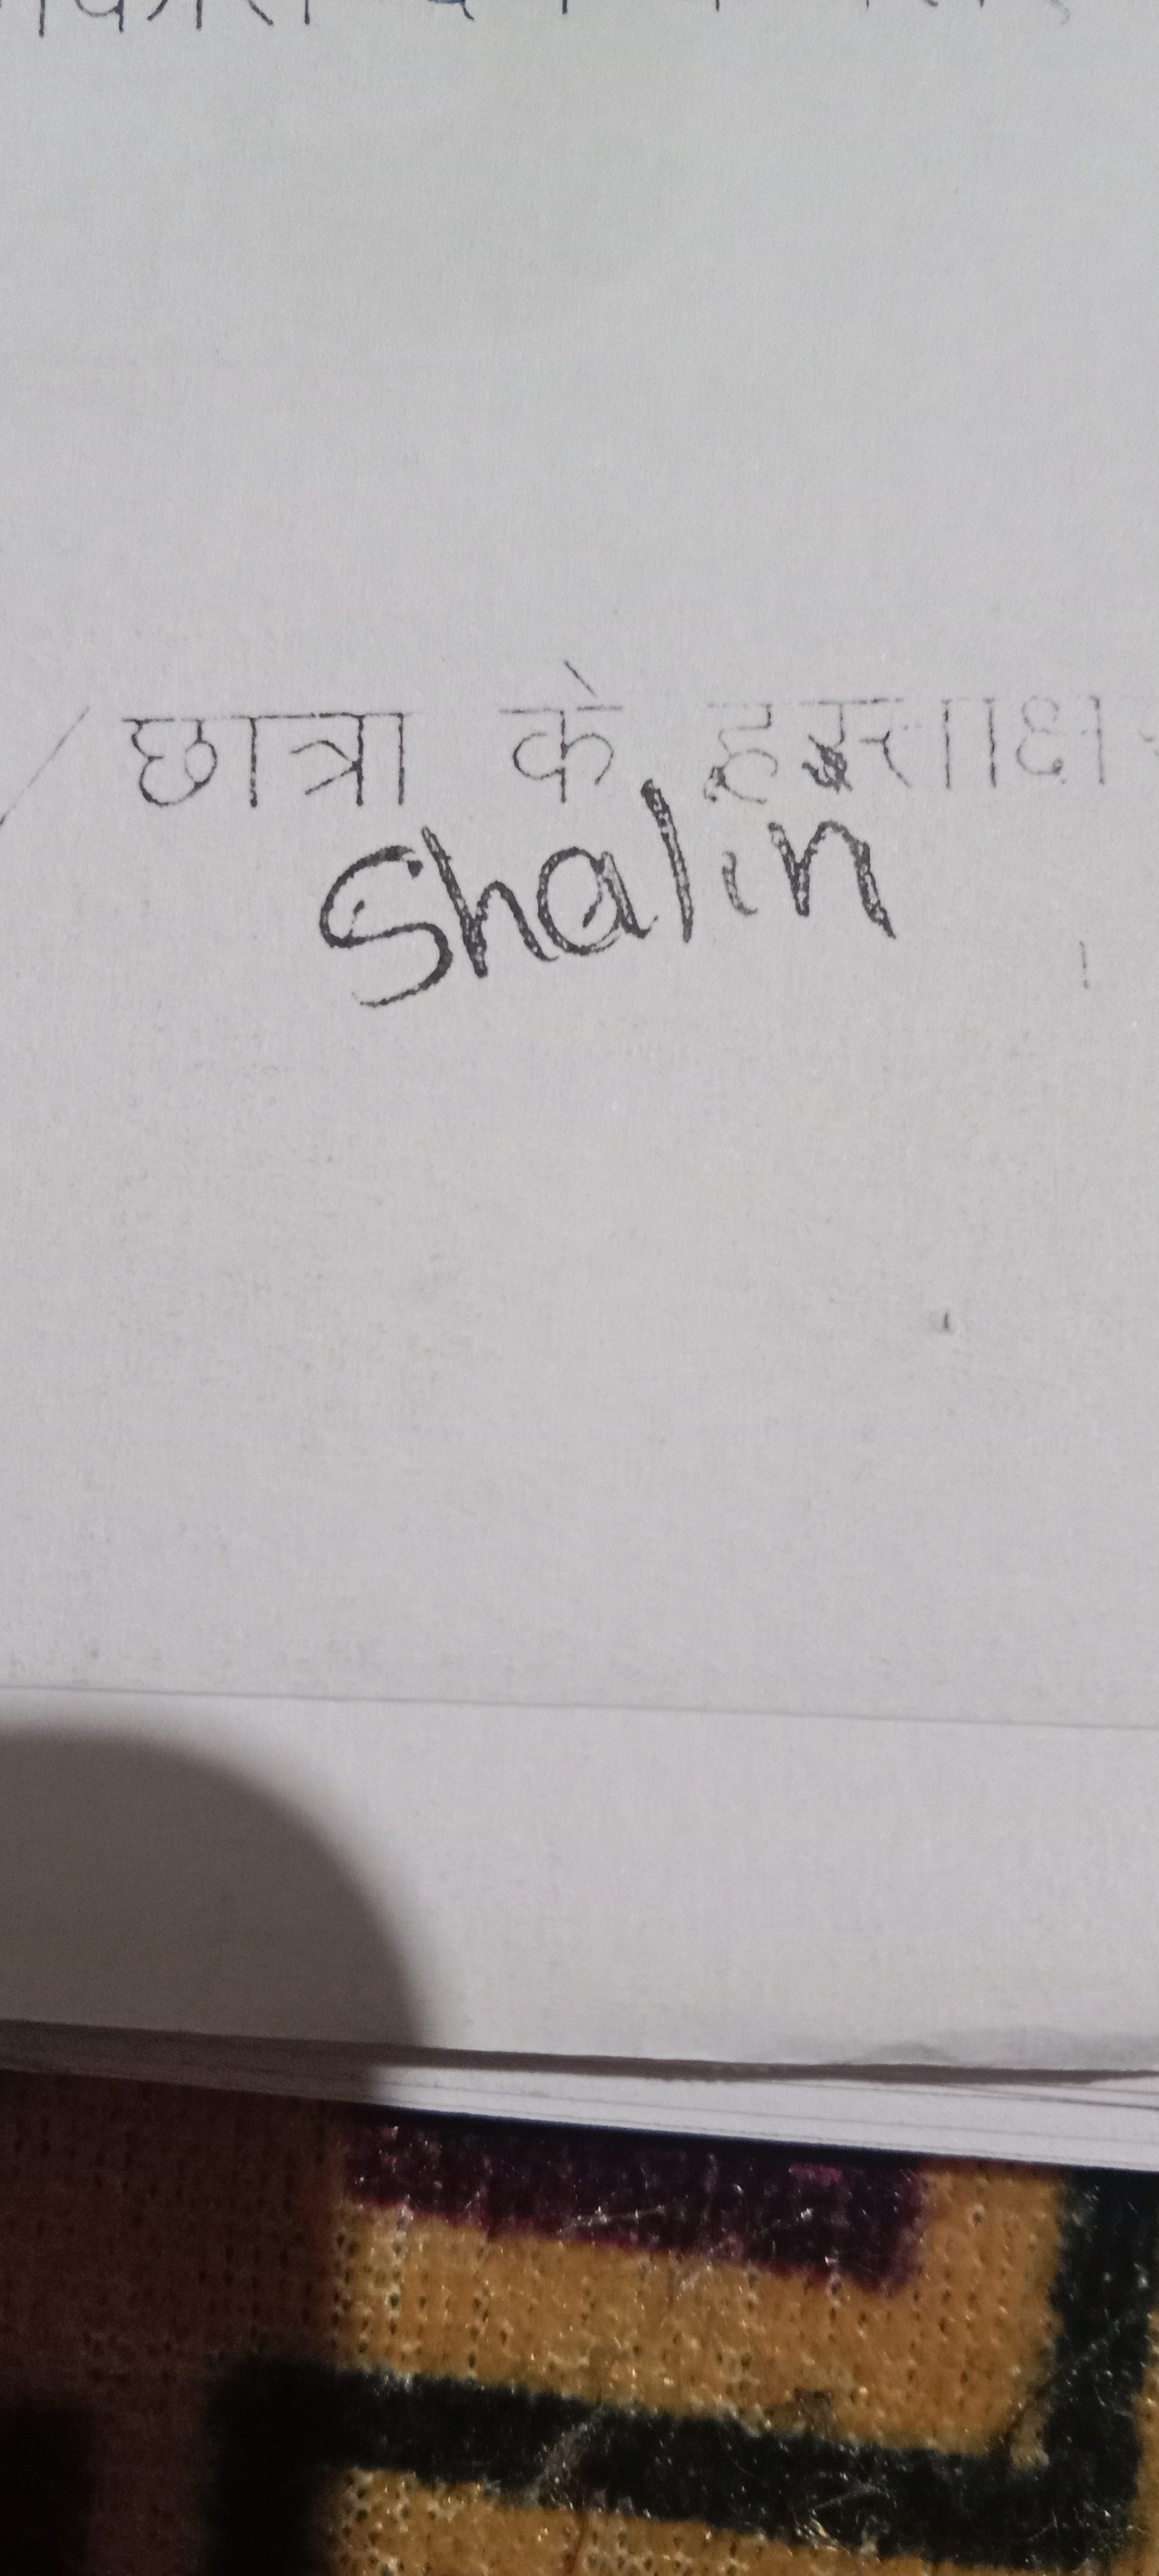 छात्रा के हस्ताक्षर
Shalin